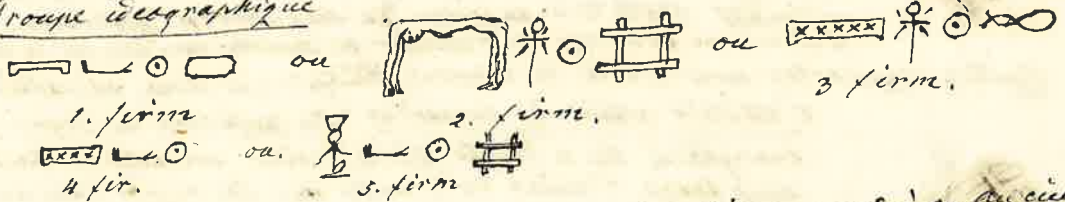 Groupe ideographique
ou ou
1. firm 2. firm. 3 firm.
ou.
4 fir. 5. firm